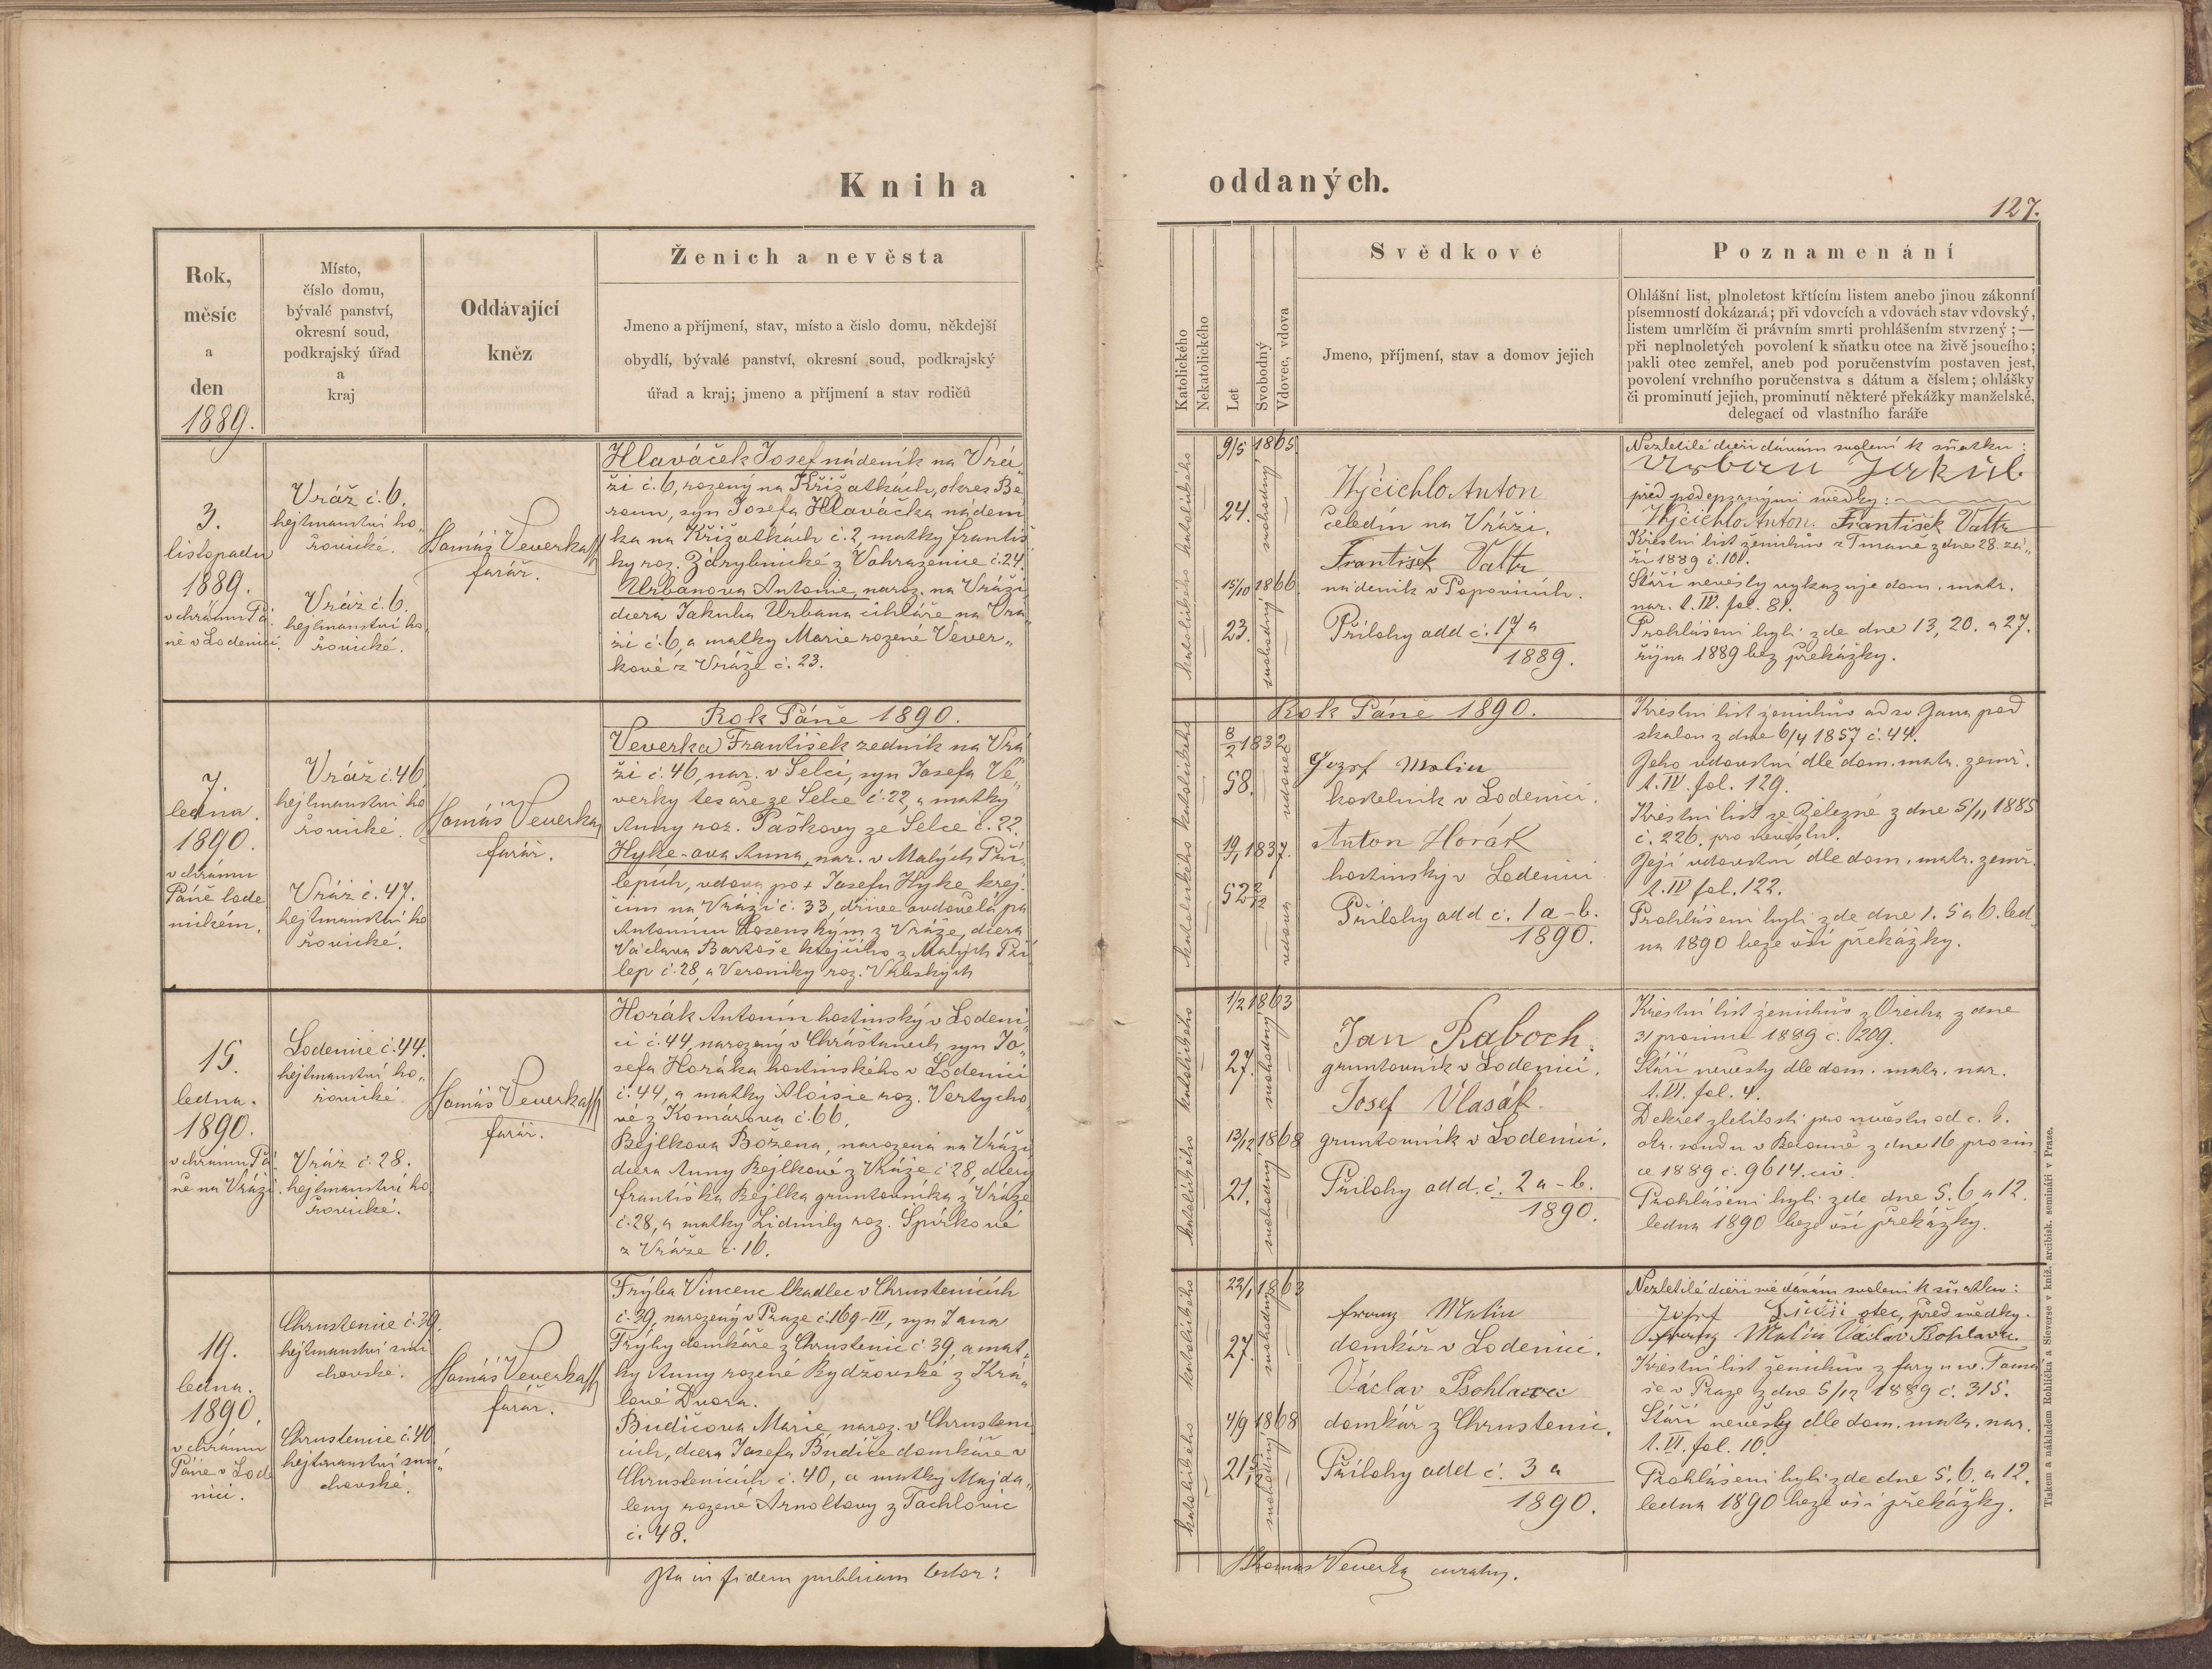 Kniha
oddaných.
127.
Rok,
měsíc
a
den
1889.
Místo,
číslo domu,
bývalé panství,
okresní soud,
podkrajský úřad
a
kraj
Oddávající
kněz
Ženich a nevěsta
Jmeno a příjmení, stav, místo a číslo domu, někdejší
obydlí, bývalé panství, okresní soud, podkrajský
úřad a kraj; jmeno a příjmení a stav rodičů
Katolického
Nekatolického
Let
Svobodný
Vdovec, vdova
Svědkové
Jmeno, příjmení, stav a domov jejich
Poznamenání
Ohlášní list, plnoletost křtícím listem anebo jinou zákonní
písemností dokázaná; při vdovcích a vdovách stav vdovský,
listem umrlčím či právním smrti prohlášením stvrzený; —
při neplnoletých povolení k sňatku otce na živě jsoucího;
pakli otec zemřel, aneb pod poručenstvím postaven jest,
povolení vrchního poručenstva s dátum a číslem; ohlášky
či prominutí jejich, prominutí některé překážky manželské,
delegací od vlastního faráře
3.
listopadu
1889.
v chrámu Pá
ně v Lodenici.
Vráž č. 6.
hejtmanství ho„
řovické.
Vráž č. 6.
hejtmanství ho
řovické.
Tomáš Veverka
farář.
Hlaváček Josef nádeník na Vrá„
ži č. 6, rozený na Křižatkách, okres Be
roun, syn Josefa Hlaváčka nádení
ka na Křižatkách č. 2, matky Františ
ky roz. Zárybnické z Vohrazenice č. 24.
Urbanova Antonie, naroz. na Vráži
dcera Jakuba Urbana cihláře na Vrá
ži č. 6, a matky Marie rozené Vever„
kové z Vráže č. 23.
katolického katolického
9/5 1865
24.
svobodný
15/10 1866
23.
svobodný
Wýčichlo Anton
čeledín na Vráži.
František Valtr
nádeník v Popovicích.
Přílohy add č. 17 a
1889.
Nezletilé dceři dávám svolení k sňatku:
Urban Jakub
před podepsanými svědky:
Wýčichlo Anton. František Valtr
Křestní list ženichův z Tmaně z dne 28. zá„
ří 1889 č. 101.
Stáří nevěsty vykazuje dom. matr.
nar. t. IV. fol. 81.
Prohlášeni byli zde dne 13, 20. a 27.
října 1889 bez překážky.
Rok Páně 1890.
7.
ledna.
1890.
v chrámu
Páně lode
nickém.
Vráž č. 46
hejtmanství ho
řovické.
Vráž č. 47.
hejtmanství ho
řovické.
Tomáš Veverka
farář.
Veverka František zedník na Vrá
ži č. 46, nar. v Selci, syn Josefa Ve„
verky tesaře ze Selce č. 22, a matky
Anny roz. Paškovy ze Selce č. 22.
Hyke-ova Anna, nar. v Malých Pří„
lepích, vdova po + Josefu Hyke krej.
čím na Vráži č. 33, dříve ovdovělá po
Antonínu Kosenským z Vráže, dcera
Václava Bartoše krejčího z Malých Pří
lep č. 28, a Veroniky roz.
Rok Páně 1890.
katolického katolického
8/2 1832
58.
vdovec
19/1 1837.
52
vdova
Jozef Malin
kostelník v Lodenici.
Anton Horák
hostinský v Lodenici
Přílohy add č. 1 a-b.
1890.
Křestní list ženichův od sv Jana pod
skalou z dne 6/4 1857 č. 44.
Jeho vdovství dle dom. matr. zemř.
t. IV. fol. 129.
Křestní list ze Železné z dne 5/11 1885
č. 226. pro nevěstu.
Její vdovství dle dom. matr. zemř.
t. IV fol. 122.
Prohlášeni byli zde dne 1. 5 a 6. led
na 1890 beze vší překážky.
15.
ledna.
1890.
v chrámu Pá
ně na Vráži.
Lodenice č. 44.
hejtmanství ho„
řovické.
Vráž č. 28.
hejtmanství ho
řovické.
Tomáš Veverka
farář.
Horák Antonín hostinský v Lodeni„
ci č. 44, narozený v Chrášťanech, syn Jo„
sefa Horáka hostinského v Lodenici
č. 44, a matky Aloisie roz. Vertycho„
vé z Komárova č. 66.
Bejlkova Božena, narozená na Vráži
dcera Anny Bejlkové z Vráže č 28, dcery
Františka Bejlka gruntovníka z Vráže
č. 28, a matky Lidmily roz. Špirkové
z Vráže č. 16.
katolického katolického
1/2 1863
27.
svobodný
13/12 1868
21.
svobodný
Jan Raboch.
gruntovník v Lodenici.
Josef Vlasák.
gruntovník v Lodenici.
Přílohy add. č. 2 a-b.
1890.
Křestní list ženichův z Ořecha z dne
31 prosince 1889 č. 209.
Stáří nevěsty dle dom. matr. nar.
t. VI. fol. 4.
Dekret zletilosti pro nevěstu od c. k.
okr. soudu v Berouně z dne 16 prosin
ce 1889 č. 9614. civ.
Prohlášeni byli zde dne 5. 6 a 12.
ledna 1890 beze vší překážky.
19.
ledna.
1890.
v chrámu
Páně v Lode
nici.
Chrustenice č. 39.
hejtmanství smí
chovské.
Chrustenice č. 40
hejtmanství smí„
chovské.
Tomáš Veverka
farář.
Frýba Vincenc tkadlec v Chrustenicích
č. 39, narozený v Praze č. 169-III, syn Jana
Frýby domkáře z Chrustenic č. 39, a mat„
ky Anny rozené Bydžovské z Krá„
lové Dvora.
Budičova Marie naroz. v Chrusteni
cích, dcera Josefa Budiče domkáře v
Chrustenicích č. 40, a matky Majda„
leny rozené Arnoltovy z Tachlovic
č. 48.
katolického katolického
22/1 1863
27.
svobodný
4/9 1868
21
svobodný
Franz Malin
domkář v Lodenici.
Václav Bohlava
domkář z Chrustenic.
Přílohy add č. 3 a
1890.
Nezletilé dceři mé dávám svolení k sňatku:
Josef otec, před svědky.
Franz Malin Václav Bohlava.
Křestní list ženichův z fary u sv. Tomá
še v Praze z dne 5/12 1889 č. 315.
Stáří nevěsty dle dom. matr. nar.
t. VI. fol. 10.
Prohlášeni byli zde dne 5. 6. a 12.
ledna 1890 beze vší překážky.
Ita in fidem publicam testor:
Thomas Veverka curatus.
Tiskem a nákladem Rohlíčka a Sieverse v kníž. arcibisk. semináři v Praze.